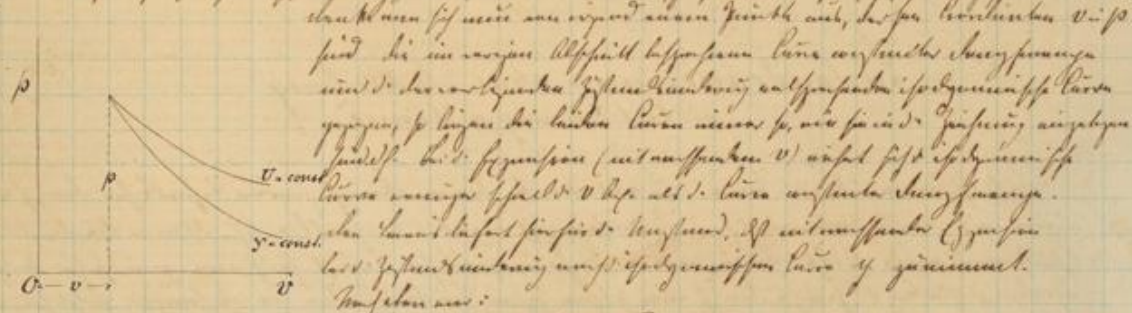 denkt man sich nun von irgend einem Punkte aus, dessen Coordinaten v u. p
sind die im vorigen Abschnitt besprochene Curve constanter Dampfmenge
und d. der vorliegenden Zustandsänderung entsprechende isodynamische Curve
gezogen, so liegen die beiden Curven immer so, wie sie in d. Zeichnung angegeben
sind d.h. bei d. Expansion (mit wachsendem v) nähert sich d. isodynamische
Curve weniger schnell d. v Axe als d. Curve constanter Dampfmenge.
den Beweis liefert hierfür d. Umstand, daß mit wachsender Expansion
bei d. Zustandsänderung nach isodynamischer Curve y zunimmt.
Nach oben war:
p
p
U = const
y = const.
O
v
v